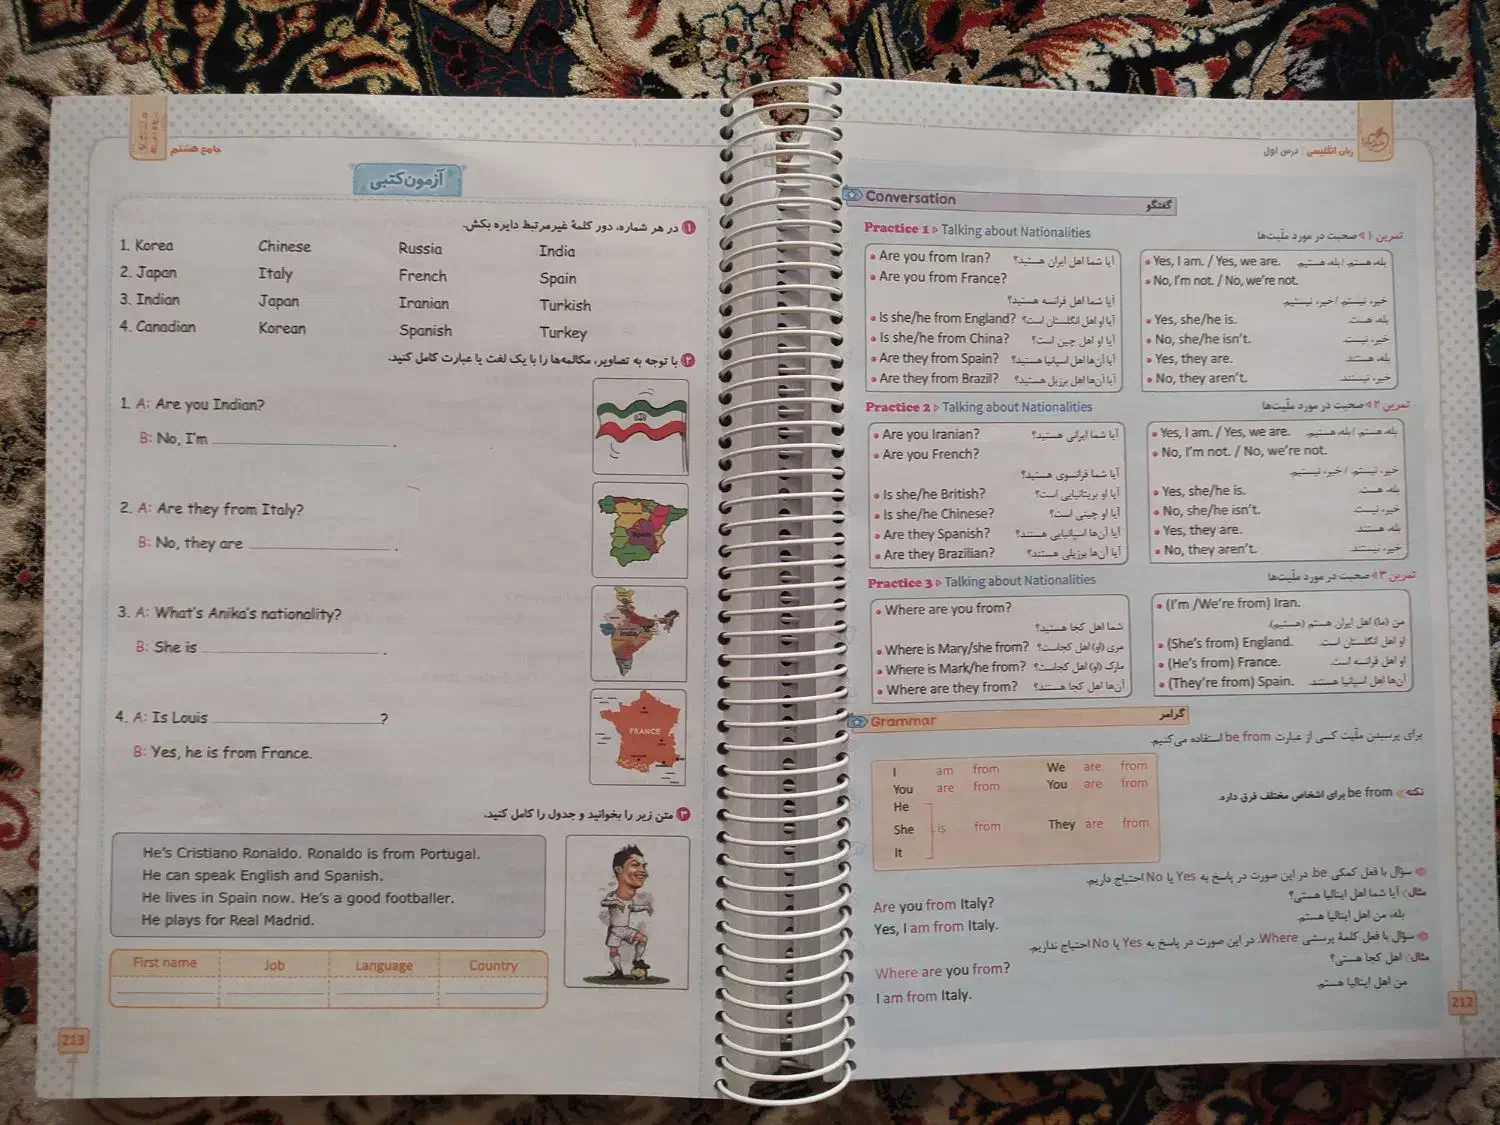 جامع هشتم
آزمون کتبی
۱ در هر شماره، دور کلمهٔ غیرمرتبط دایره بکش.
1. Korea Chinese Russia India
2. Japan Italy French Spain
3. Indian Japan Iranian Turkish
4. Canadian Korean Spanish Turkey
۲ با توجه به تصاویر، مکالمه‌ها را با یک لغت یا عبارت کامل کنید.
1. A: Are you Indian?
B: No, I'm ____________.
2. A: Are they from Italy?
B: No, they are ____________.
Spain
3. A: What's Anika's nationality?
B: She is ____________.
India
4. A: Is Louis ____________?
B: Yes, he is from France.
FRANCE
۳ متن زیر را بخوانید و جدول را کامل کنید.
He's Cristiano Ronaldo. Ronaldo is from Portugal.
He can speak English and Spanish.
He lives in Spain now. He's a good footballer.
He plays for Real Madrid.
First name Job Language Country
213
زبان انگلیسی | درس اول
Conversation گفتگو
Practice 1 Talking about Nationalities تمرین ۱ صحبت در مورد ملّیت‌ها
Are you from Iran? آیا شما اهل ایران هستید؟
Are you from France?
آیا شما اهل فرانسه هستید؟
Is she/he from England? آیا او اهل انگلستان است؟
Is she/he from China? آیا او اهل چین است؟
Are they from Spain? آیا آن‌ها اهل اسپانیا هستید؟
Are they from Brazil? آیا آن‌ها اهل برزیل هستید؟
Yes, I am. / Yes, we are. بله، هستم. / بله، هستیم.
No, I'm not. / No, we're not.
خیر، نیستم. / خیر، نیستیم.
Yes, she/he is. بله، هست.
No, she/he isn't. خیر، نیست.
Yes, they are. بله، هستند.
No, they aren't. خیر، نیستند.
Practice 2 Talking about Nationalities تمرین ۲ صحبت در مورد ملّیت‌ها
Are you Iranian? آیا شما ایرانی هستید؟
Are you French?
آیا شما فرانسوی هستید؟
Is she/he British? آیا او بریتانیایی است؟
Is she/he Chinese? آیا او چینی است؟
Are they Spanish? آیا آن‌ها اسپانیایی هستند؟
Are they Brazilian? آیا آن‌ها برزیلی هستند؟
Yes, I am. / Yes, we are. بله، هستم. / بله، هستیم.
No, I'm not. / No, we're not.
خیر، نیستم. / خیر، نیستیم.
Yes, she/he is. بله، هست.
No, she/he isn't. خیر، نیست.
Yes, they are. بله، هستند.
No, they aren't. خیر، نیستند.
Practice 3 Talking about Nationalities تمرین ۳ صحبت در مورد ملّیت‌ها
Where are you from?
شما اهل کجا هستید؟
Where is Mary/she from? مری (او) اهل کجاست؟
Where is Mark/he from? مارک (او) اهل کجاست؟
Where are they from? آن‌ها اهل کجا هستند؟
(I'm /We're from) Iran.
من (ما) اهل ایران هستم (هستیم).
(She's from) England. او اهل انگلستان است.
(He's from) France. او اهل فرانسه است.
(They're from) Spain. آن‌ها اهل اسپانیا هستند.
Grammar گرامر
برای پرسیدن ملّیت کسی از عبارت be from استفاده می‌کنیم.
I am from We are from
You are from You are from
He
She is from They are from
It
نکته be from برای اشخاص مختلف فرق داره.
سؤال با فعل کمکی be. در این صورت در پاسخ به Yes یا No احتیاج داریم.
Are you from Italy? مثال آیا شما اهل ایتالیا هستی؟
Yes, I am from Italy. بله، من اهل ایتالیا هستم.
سؤال با فعل کلمهٔ پرسشی Where. در این صورت در پاسخ به Yes یا No احتیاج نداریم.
Where are you from? مثال اهل کجا هستی؟
I am from Italy. من اهل ایتالیا هستم.
212